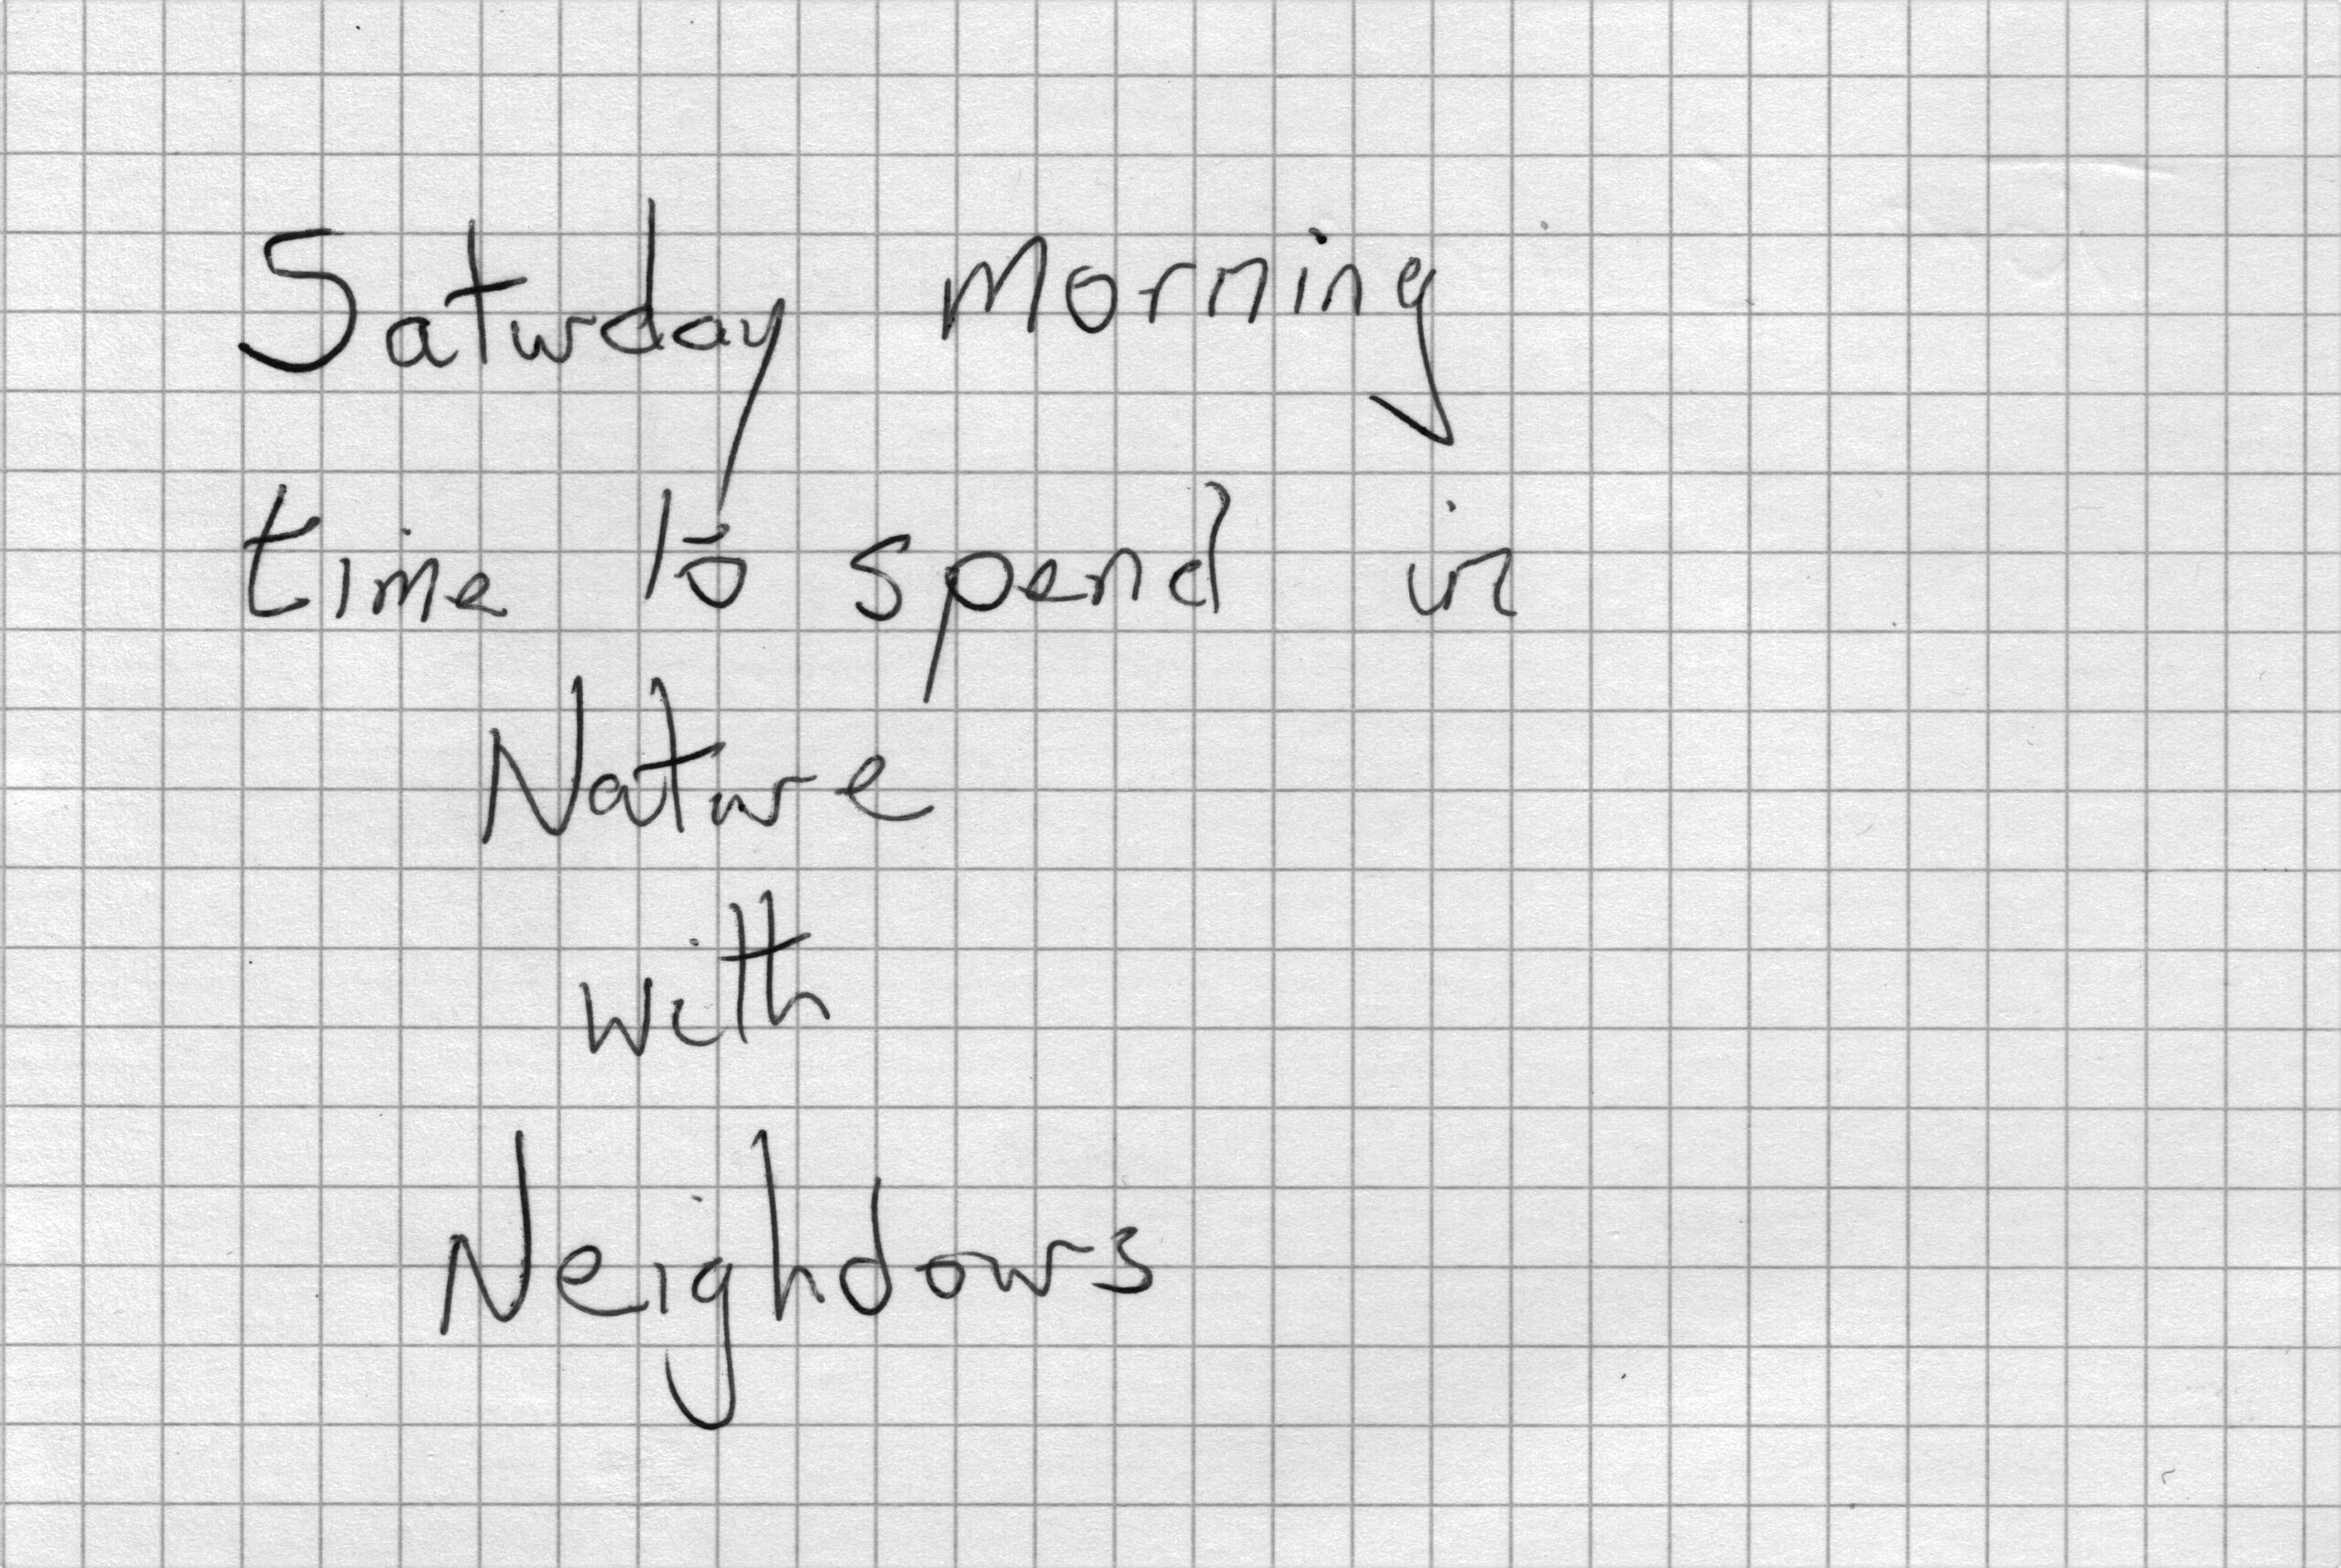 Saturday morning
time to spend in
Nature
with
Neighdours